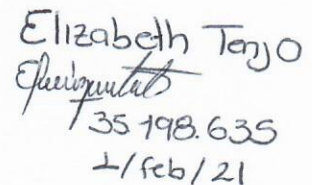 Elizabeth Tenjo
35 198.635
1/feb/21